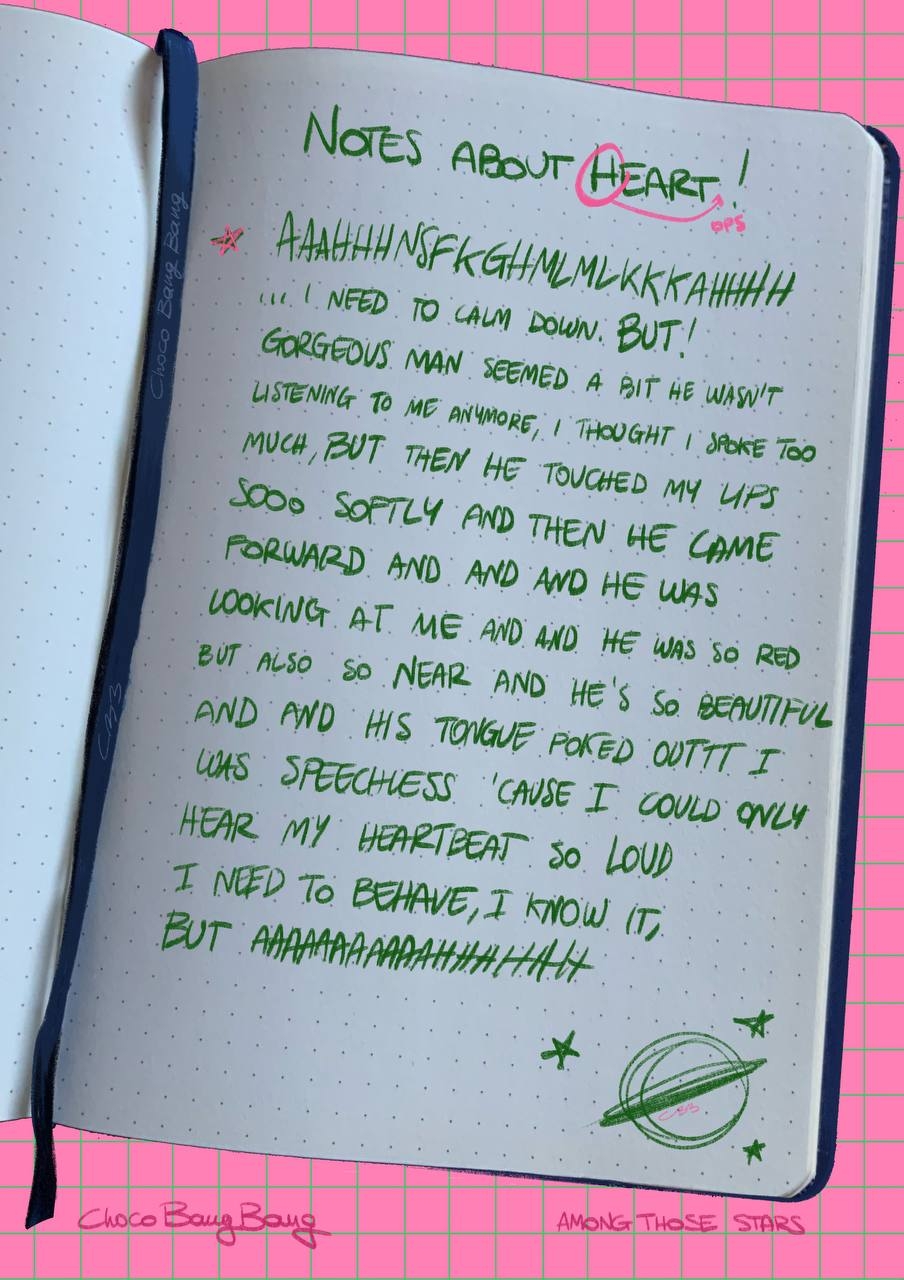 NOTES ABOUT HEART!
OPS
AAAHHHNSFKGHMLMLKKKAHHHH
... I NEED TO CALM DOWN. BUT!
GORGEOUS MAN SEEMED A BIT HE WASN'T
LISTENING TO ME ANYMORE, I THOUGHT I SPOKE TOO
MUCH, BUT THEN HE TOUCHED MY LIPS
SOOO SOFTLY AND THEN HE CAME
FORWARD AND AND AND HE WAS
LOOKING AT ME AND AND HE WAS SO RED
BUT ALSO SO NEAR AND HE'S SO BEAUTIFUL
AND AND HIS TONGUE POKED OUTTT I
WAS SPEECHLESS 'CAUSE I COULD ONLY
HEAR MY HEARTBEAT SO LOUD
I NEED TO BEHAVE, I KNOW IT,
BUT AAAAAAAAAAAHHHHHHH
Choco Bang Bang
CBB
CBB
Choco Bang Bang
AMONG THOSE STARS